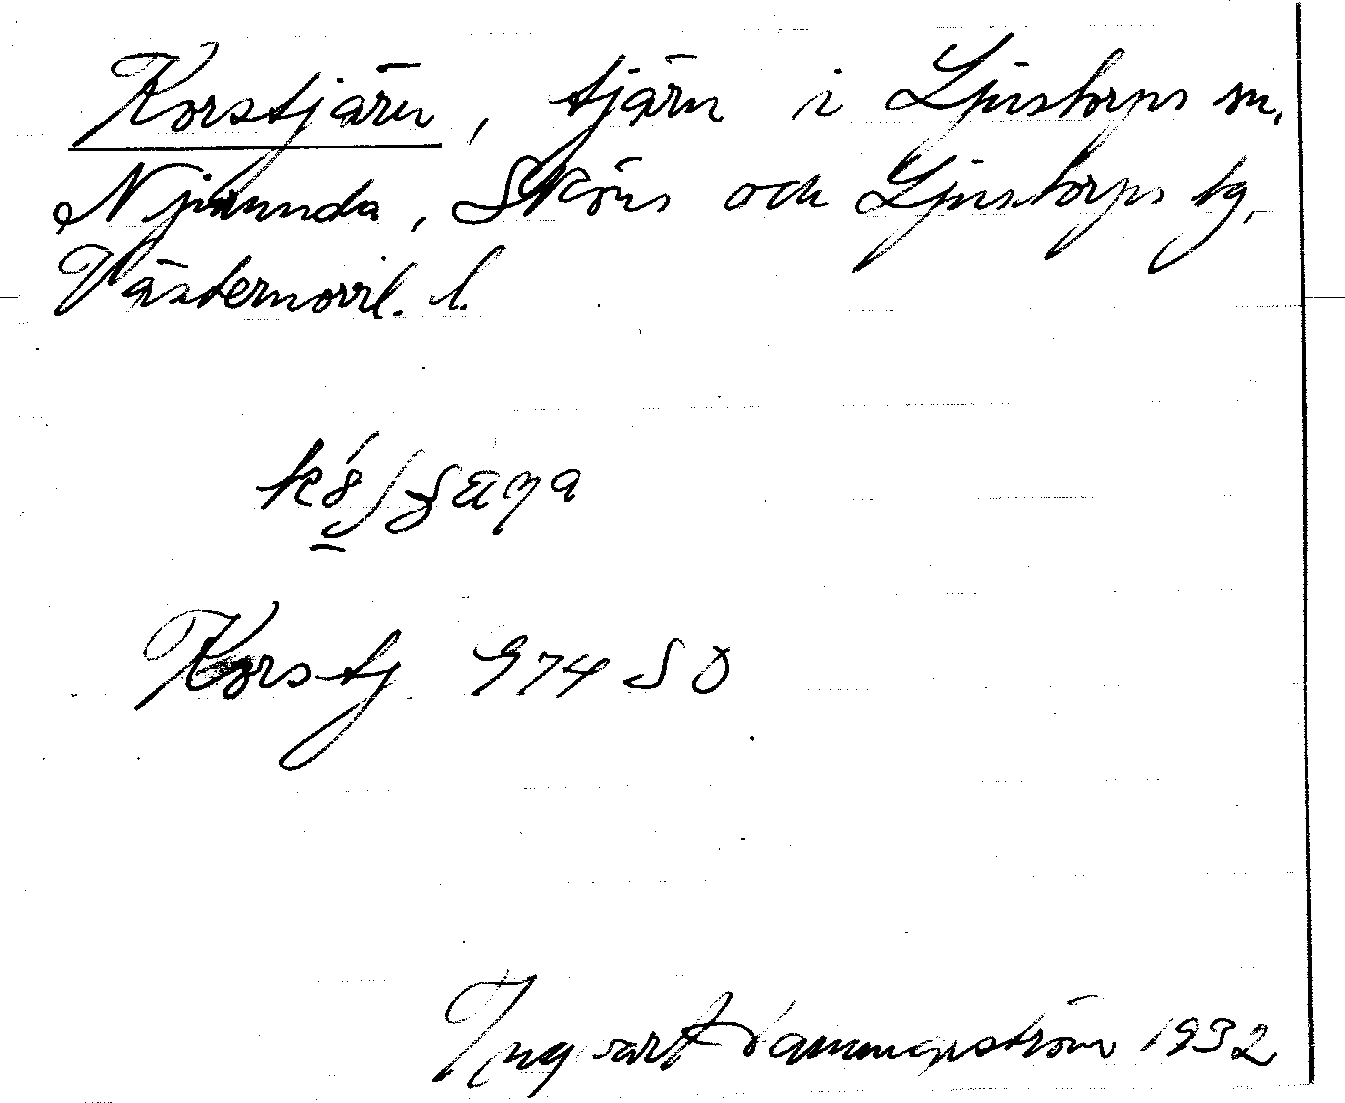 Korstjärn, tjärn i Ljustorps sn.
Njurunda, Sköns och Ljustorps tg,
Västernorrl. l.
Korstj 974 SO
Ingvart 1932